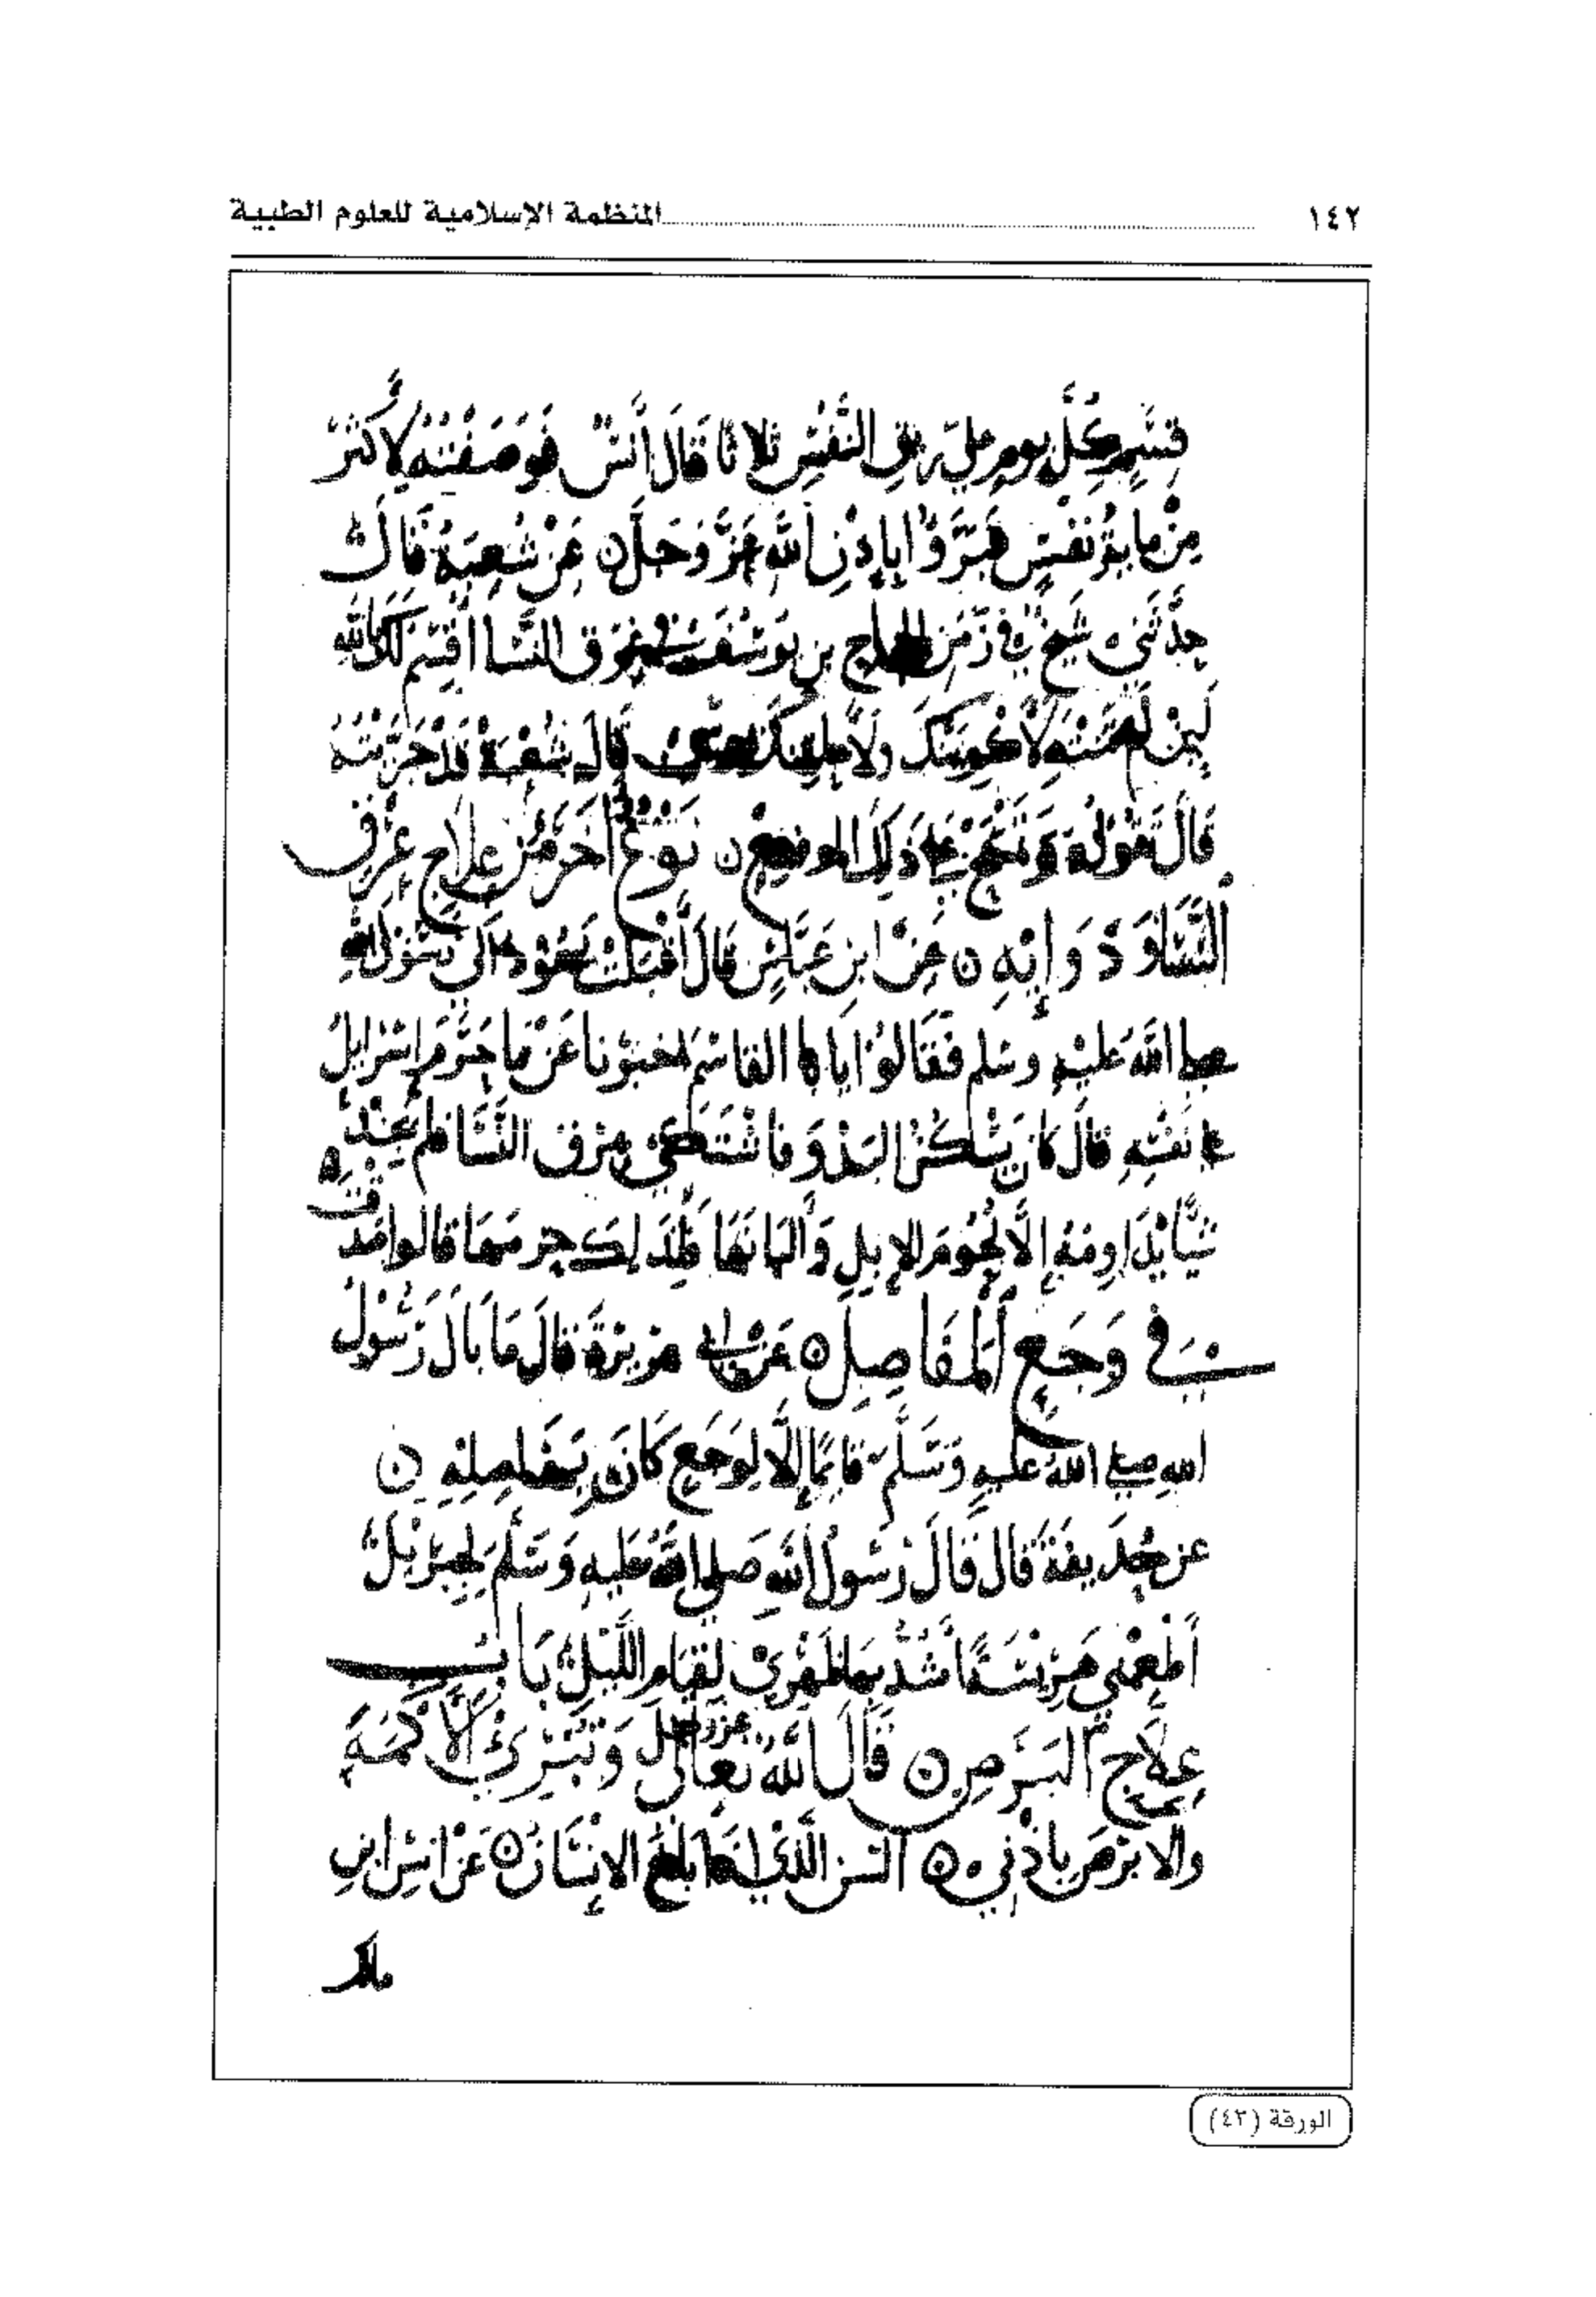 ١٤٢ المنظمة الإسلامية للعلوم الطبية
قسم كل يوم على ريق النفس ثلاثا قال أنس فوصفته لأكثر
من مايه نفس فبروا بإذن الله عز وجل عن شعبة قال
حدثني شيخ في زمن الحجاج بن يوسف عرق النسا أقسم لك بالله
لين لم ولا قال شعبة قد جربته
قال تقوله وتمسح على ذلك الموضع نوع اخر من علاج عرق
النسا ودوايه عن ابن عباس قال أقبلت يهود الى رسول الله
صلى الله عليه وسلم فقالوا يا ابا القاسم اخبرنا عن ما حرم اسرايل
على نفسه قال كان يسكن البدو فاشتكى عرق النسا فلم يجد
شيا يداومه إلا لحوم الإبل وألبانها فلذلك حرمها قالوا صدقت
في وجع المفاصل عن ابي هريرة قال ما بال رسول
الله صلى الله عليه وسلم قايما إلا لوجع كان بمفاصله
عن حذيفة قال قال رسول الله صلى الله عليه وسلم لجبريل
أطعمني هريسة أشد بها ظهري لقيام الليل باب
علاج البرص قال الله تعالى عز وجل وتبرئ الأكمه
والابرص بإذني السن الذي اذا بلغ الإنسان عن انس ابن
مالك
الورقة (٤٣)